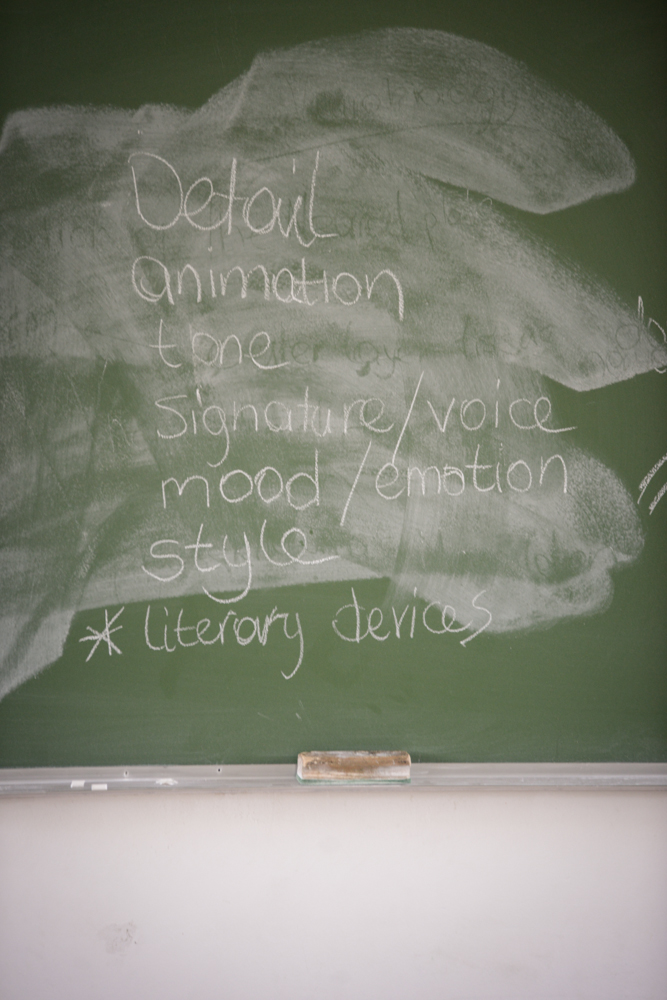 Detail
animation
tone
signature/voice
mood/emotion
style
* literary devices